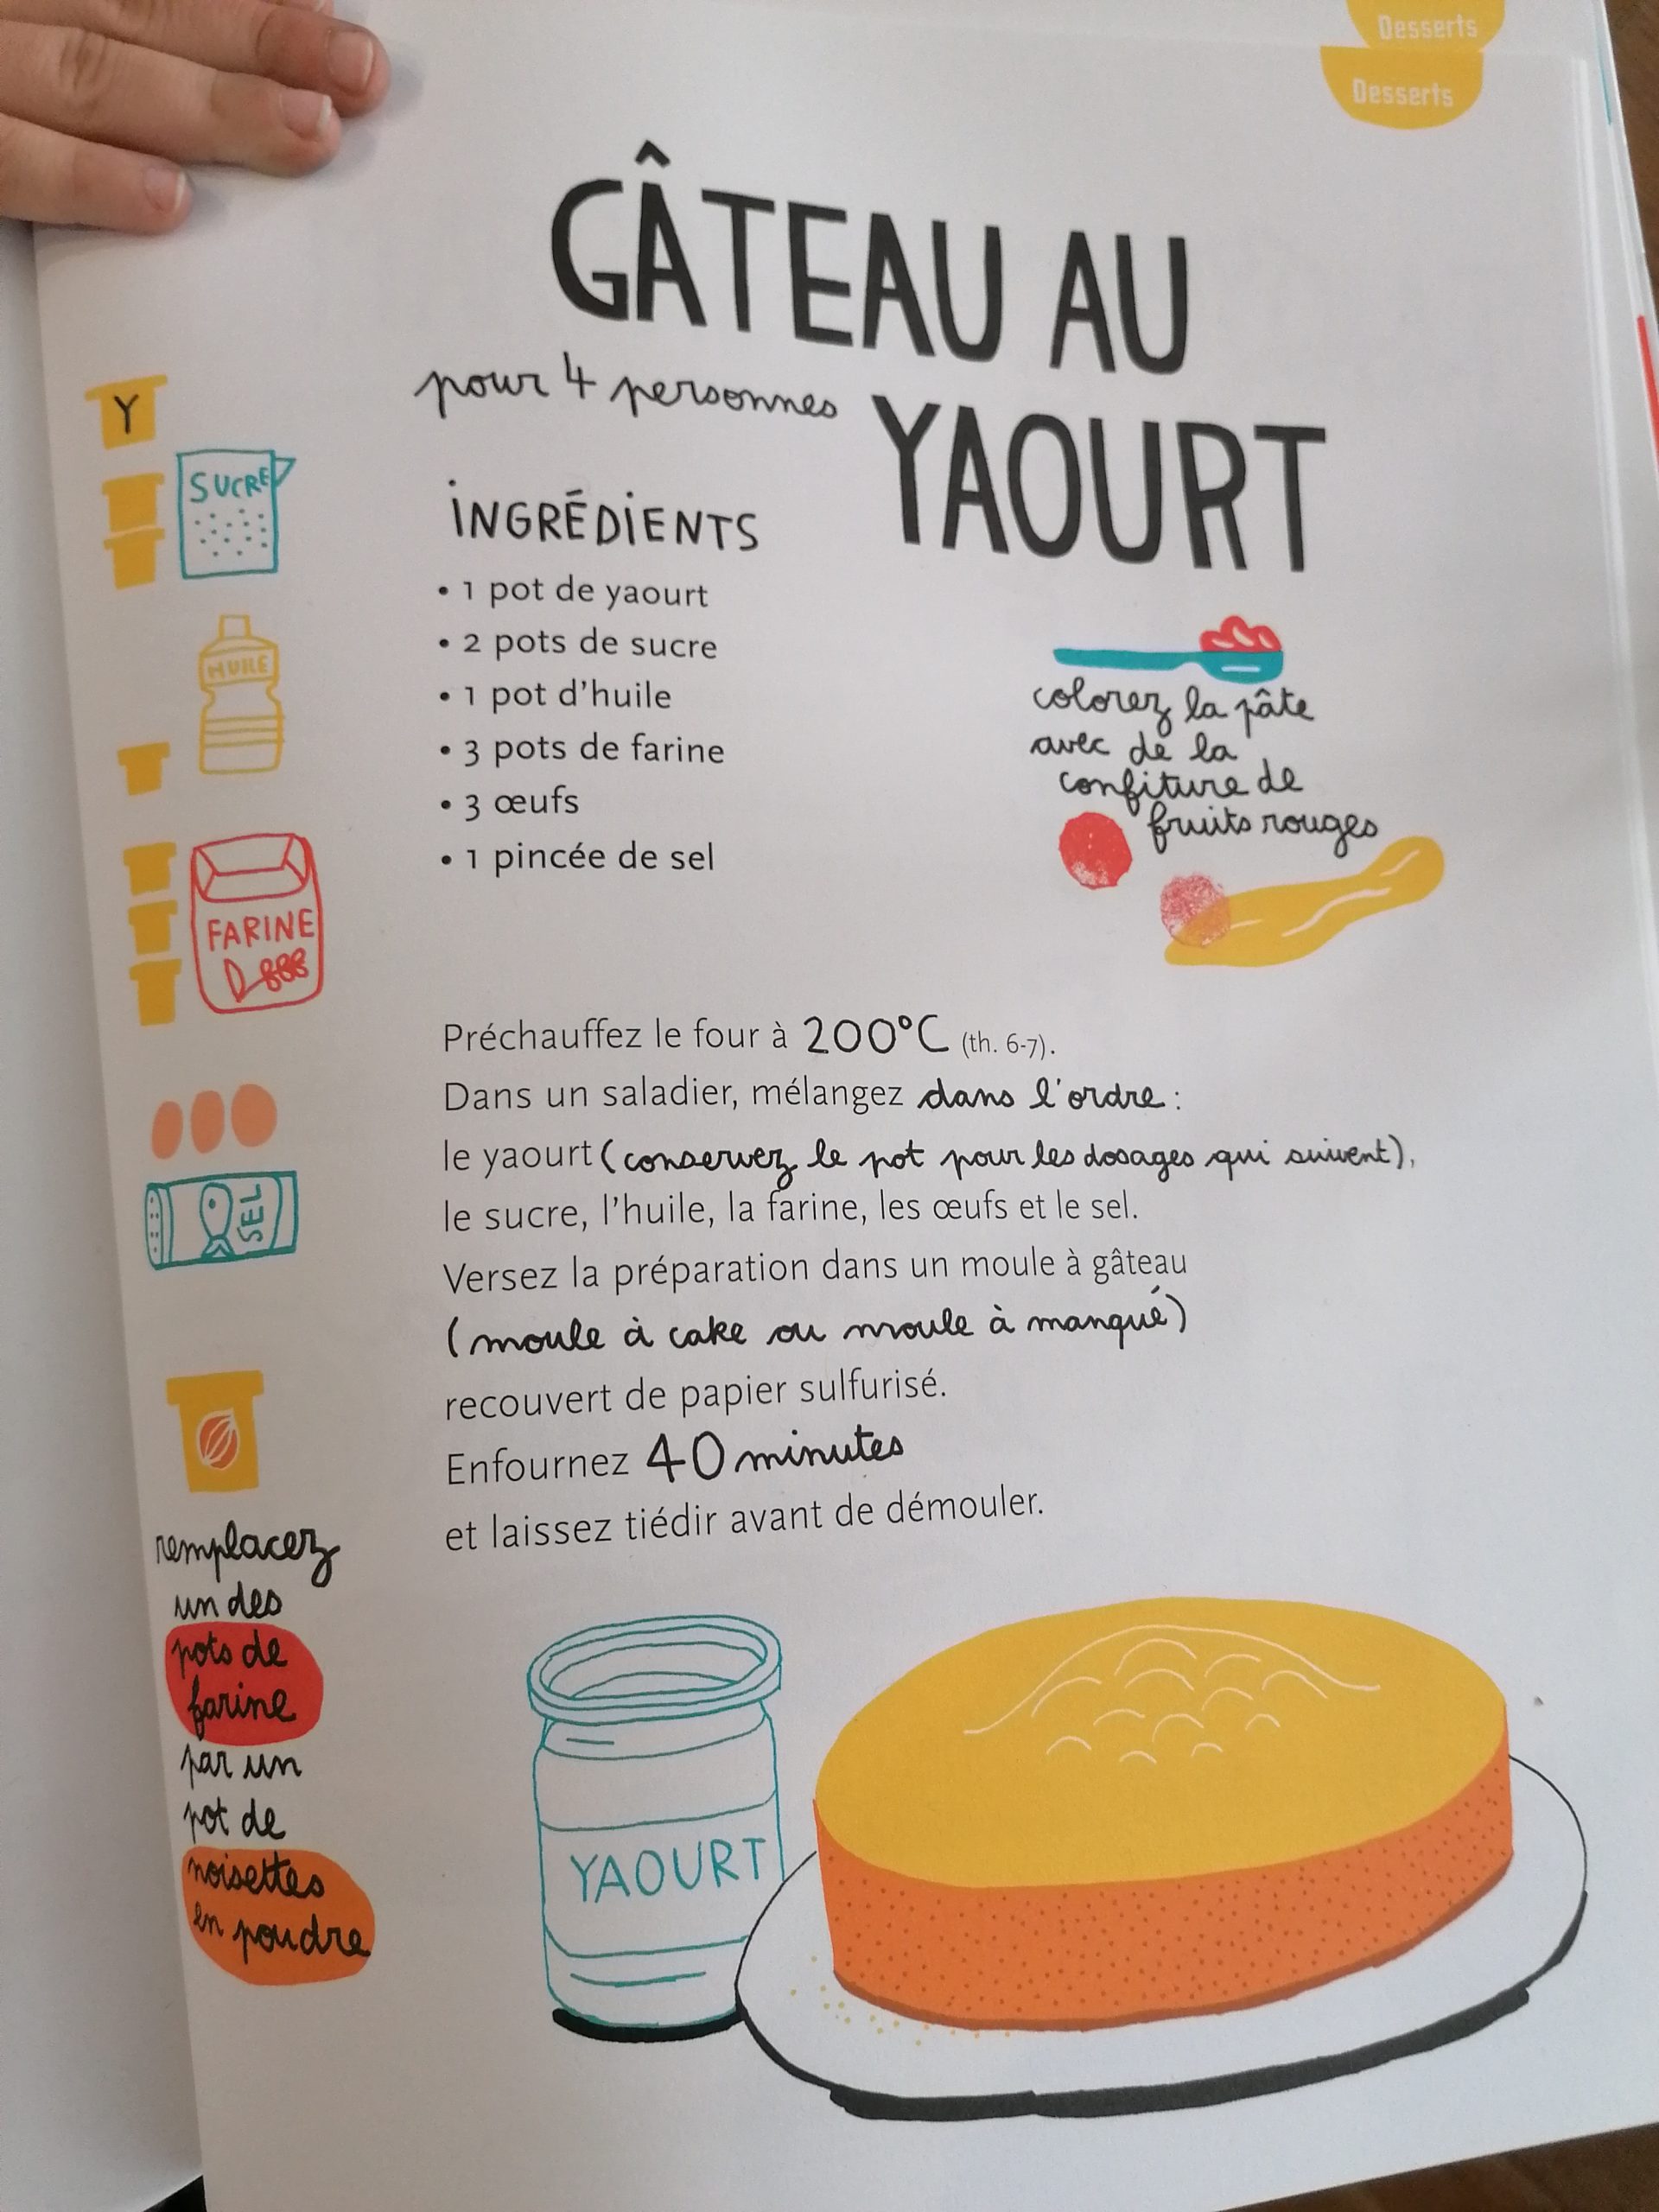 Desserts
Desserts
GÂTEAU AU
YAOURT
pour 4 personnes
Y
SUCRE
HUILE
FARINE
SEL
INGRÉDIENTS
• 1 pot de yaourt
• 2 pots de sucre
• 1 pot d'huile
• 3 pots de farine
• 3 œufs
• 1 pincée de sel
colorez la pâte
avec de la
confiture de
fruits rouges
Préchauffez le four à 200°C (th. 6-7).
Dans un saladier, mélangez dans l'ordre :
le yaourt (conservez le pot pour les dosages qui suivent),
le sucre, l'huile, la farine, les œufs et le sel.
Versez la préparation dans un moule à gâteau
(moule à cake ou moule à manqué)
recouvert de papier sulfurisé.
Enfournez 40 minutes
et laissez tiédir avant de démouler.
remplacez
un des
pots de
farine
par un
pot de
noisettes
en poudre
YAOURT